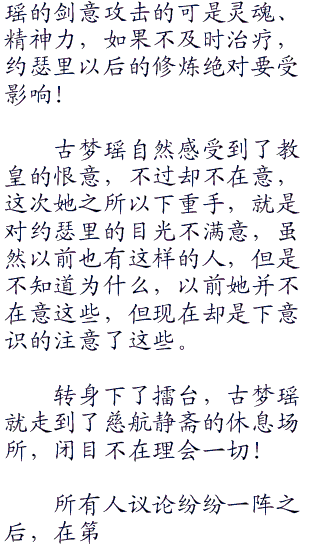 瑶的剑意攻击的可是灵魂、
精神力，如果不及时治疗，
约瑟里以后的修炼绝对要受
影响！
古梦瑶自然感受到了教
皇的恨意，不过却不在意，
这次她之所以下重手，就是
对约瑟里的目光不满意，虽
然以前也有这样的人，但是
不知道为什么，以前她并不
在意这些，但现在却是下意
识的注意了这些。
转身下了擂台，古梦瑶
就走到了慈航静斋的休息场
所，闭目不在理会一切！
所有人议论纷纷一阵之
后，在第